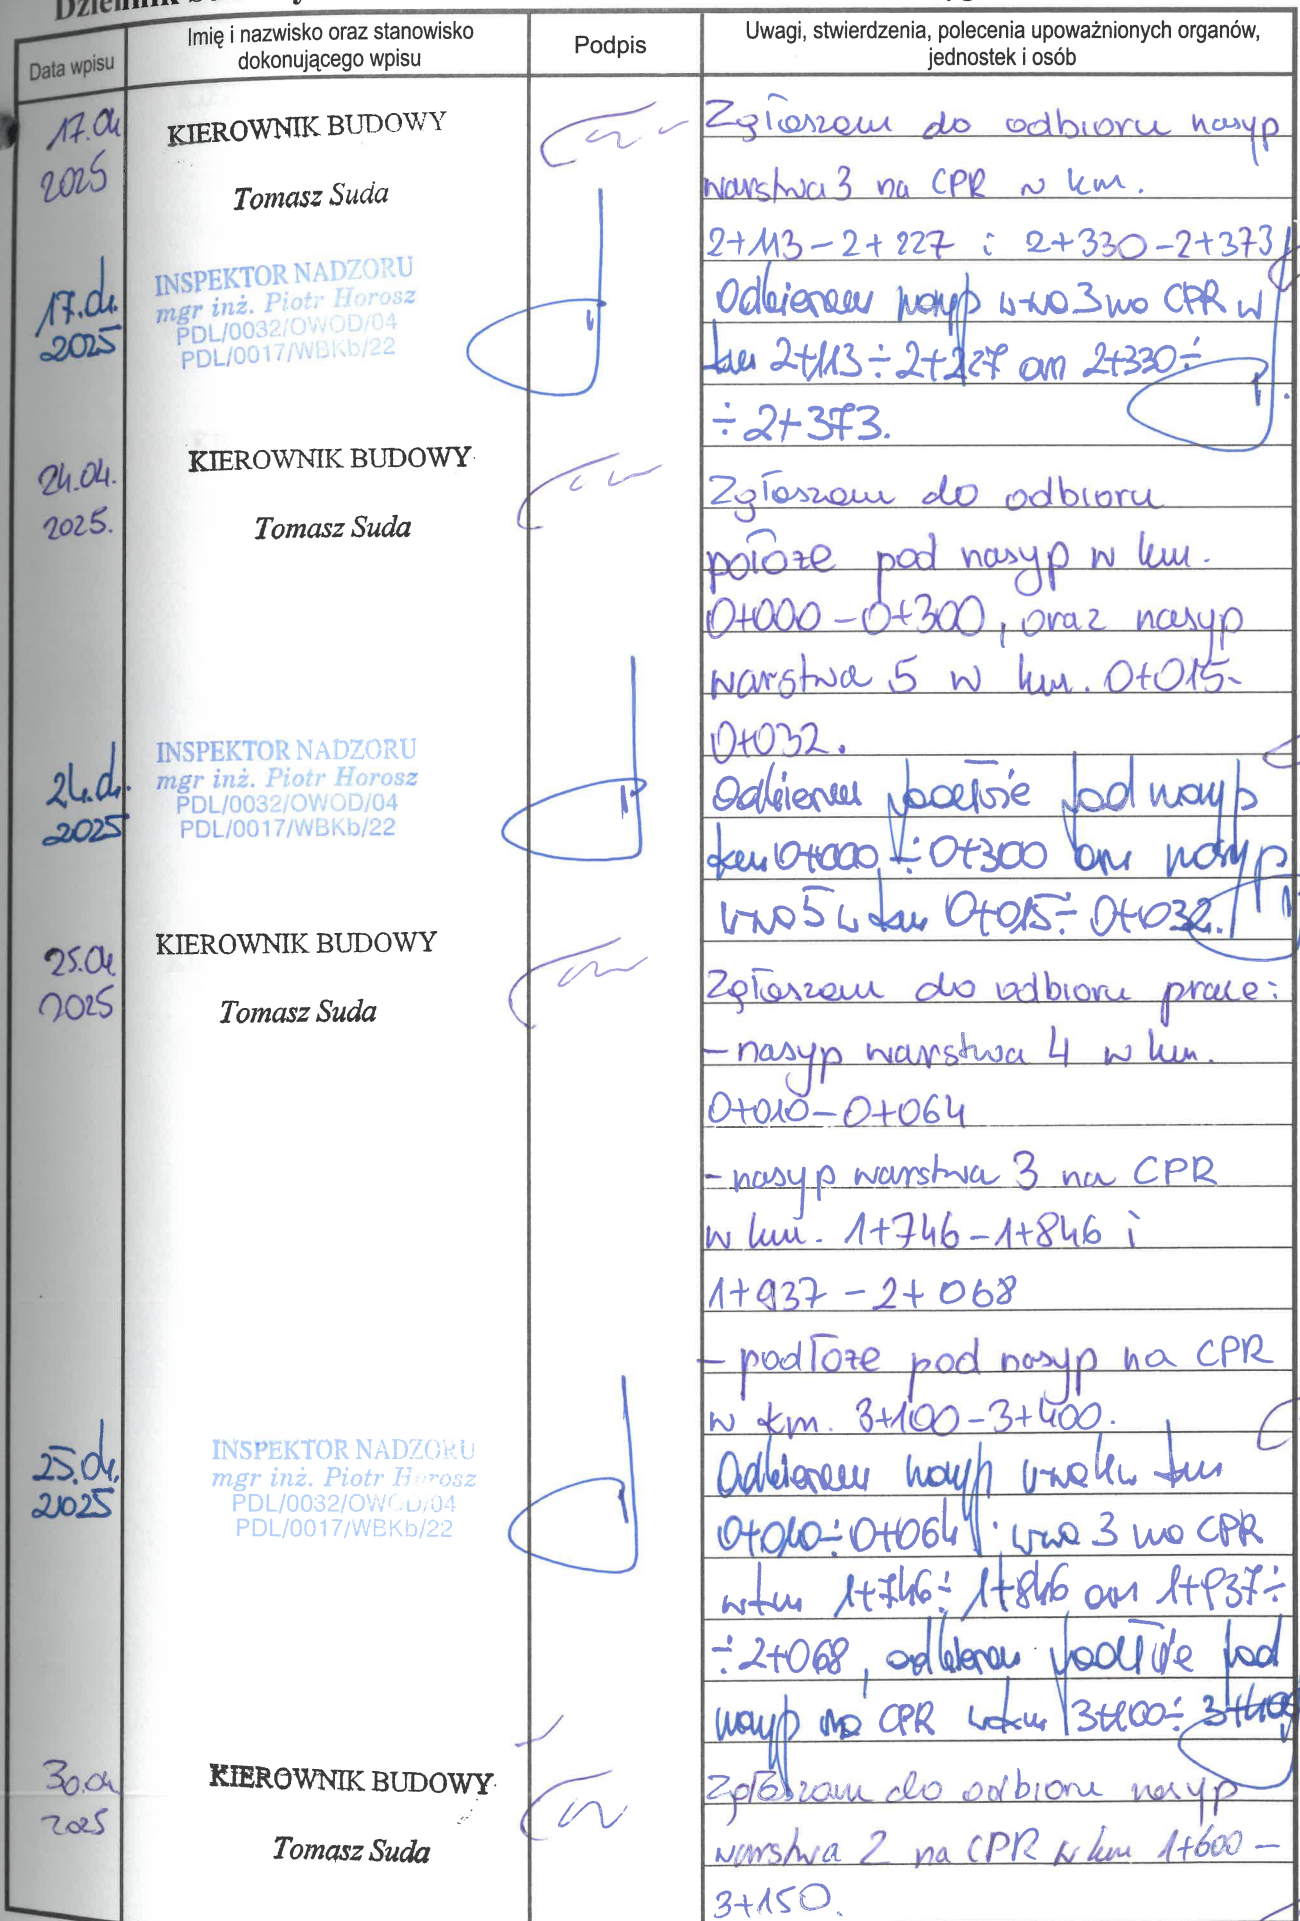 Data wpisu
Imię i nazwisko oraz stanowisko
dokonującego wpisu
Podpis
Uwagi, stwierdzenia, polecenia upoważnionych organów,
jednostek i osób
17.04
2025
KIEROWNIK BUDOWY
Tomasz Suda
Zgłaszam do odbioru nasyp
warstwa 3 na CPR w km.
2+113-2+227 i 2+330-2+373
17.04.
2025
INSPEKTOR NADZORU
mgr inż. Piotr Horosz
PDL/0032/OWOD/04
PDL/0017/WBKb/22
Odbieram nasyp w-wa 3 na CPR w
km 2+113 ÷ 2+227 oraz 2+330 ÷
÷ 2+373.
24.04.
2025.
KIEROWNIK BUDOWY
Tomasz Suda
Zgłaszam do odbioru
położe pod nasyp w km.
0+000-0+300, oraz nasyp
warstwa 5 w km. 0+015-
0+032.
24.04.
2025
INSPEKTOR NADZORU
mgr inż. Piotr Horosz
PDL/0032/OWOD/04
PDL/0017/WBKb/22
Odbieram podłoże pod nasyp
km 0+000 ÷ 0+300 oraz nasyp
w-wa 5 w km 0+015 ÷ 0+032.
25.04
2025
KIEROWNIK BUDOWY
Tomasz Suda
Zgłaszam do odbioru prace:
- nasyp warstwa 4 w km.
0+010-0+064
- nasyp warstwa 3 na CPR
w km. 1+746-1+846 i
1+937-2+068
- podłoże pod nasyp na CPR
w km. 3+100-3+400.
25.04.
2025
INSPEKTOR NADZORU
mgr inż. Piotr Horosz
PDL/0032/OWOD/04
PDL/0017/WBKb/22
Odbieram nasyp km
0+010 ÷ 0+064 w-wa 3 na CPR
w km 1+746 ÷ 1+846 oraz 1+937 ÷
÷ 2+068, odbieram podłoże pod
nasyp na CPR w km 3+100 ÷
30.04
2025
KIEROWNIK BUDOWY
Tomasz Suda
Zgłaszam do odbioru nasyp
warstwa 2 na CPR w km 1+600-
3+150.